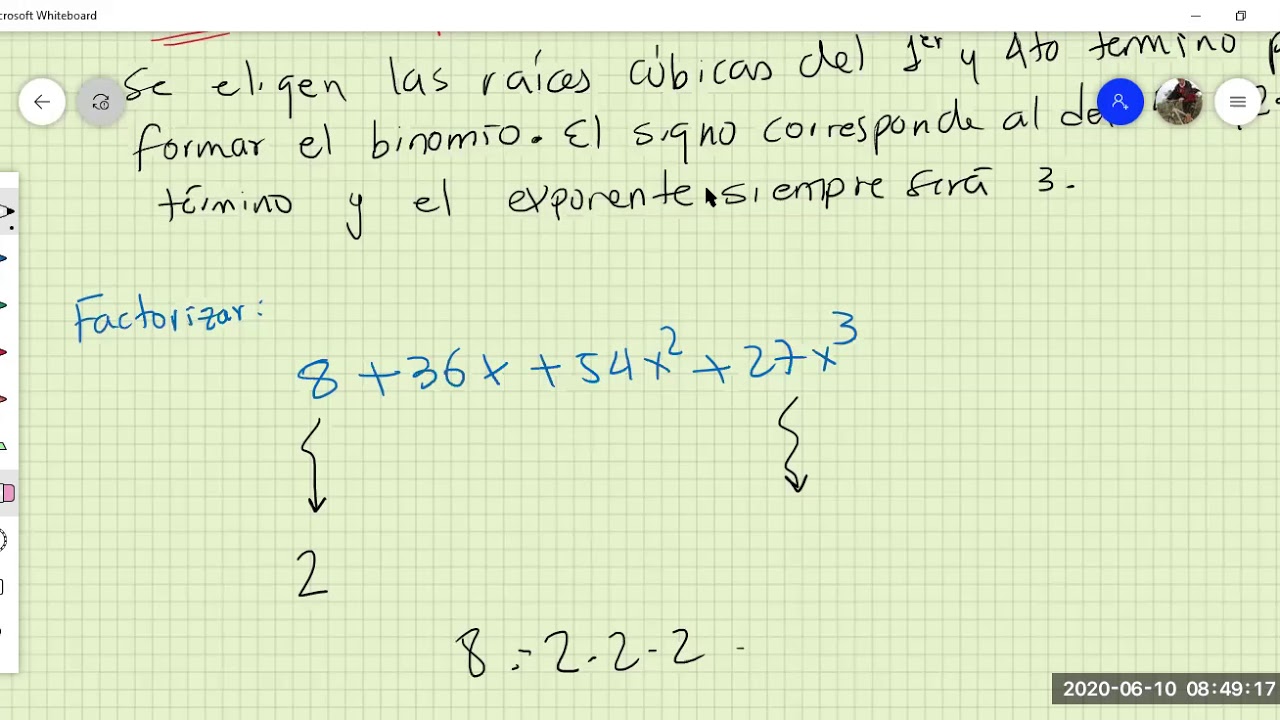 crosoft Whiteboard
Se eligen las raíces cúbicas del 1er y 4to termino
formar el binomio. El signo corresponde al
término y el exponente siempre será 3.
Factorizar:
8 + 36x + 54x² + 27x³
2
8 = 2 · 2 · 2
2020-06-10 08:49:17